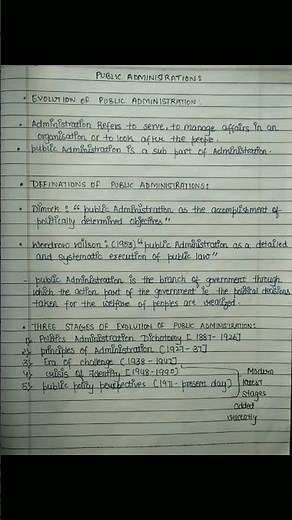 PUBLIC ADMINISTRATIONS
• EVOLUTION OF PUBLIC ADMINISTRATION:
• Administration Refers to serve, to manage affairs in an
organisation or to look after the people.
• public Administration is a sub part of Administration.
• DEFINATIONS OF PUBLIC ADMINISTRATIONS:
• Dimock: "public Administration as the accomplishment of
politically determined objectives"
• Woodrow wilson: "public Administration as a detailed
and systematic execution of public law"
- public Administration is the branch of government through
which the action part of the government ie the political decisions
taken for the welfare of peoples are realized.
• THREE STAGES OF EVOLUTION OF PUBLIC ADMINISTRATION:
1) Politics Administration Dichotomy [1887-1926]
2) principles of Administration [1927-37]
3) Era of challenge (1938-1947]
4) crisis of Identity [1948-1990]
5) public policy perspectives (1971-present day]
Modern
latest
stages
added
recently